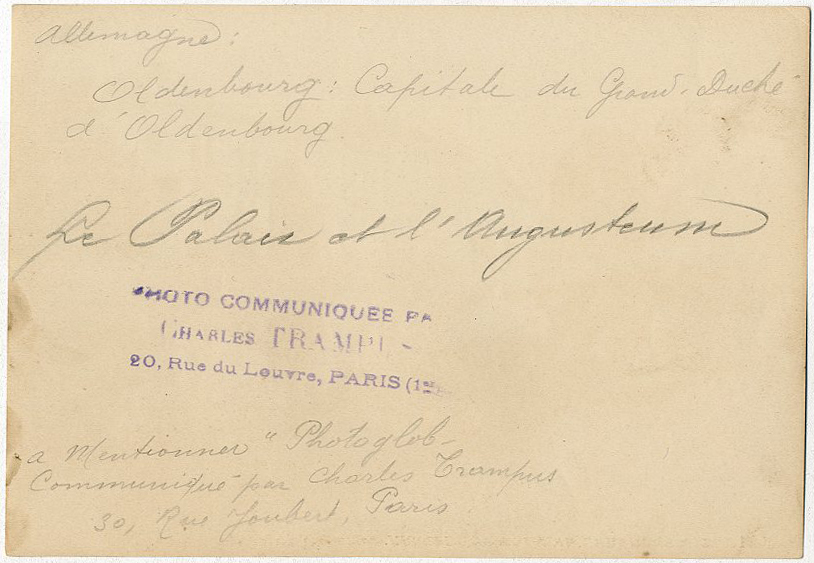 Allemagne:
Oldenbourg: Capitale du Grand-Duché
d'Oldenbourg
Le Palais et l'Augusteum
PHOTO COMMUNIQUÉE PA
CHARLES TRAMPU
20, Rue du Louvre, PARIS (1er
a Mentionner "Photoglob-
Communiqué par Charles Trampus
30, Rue Joubert, Paris